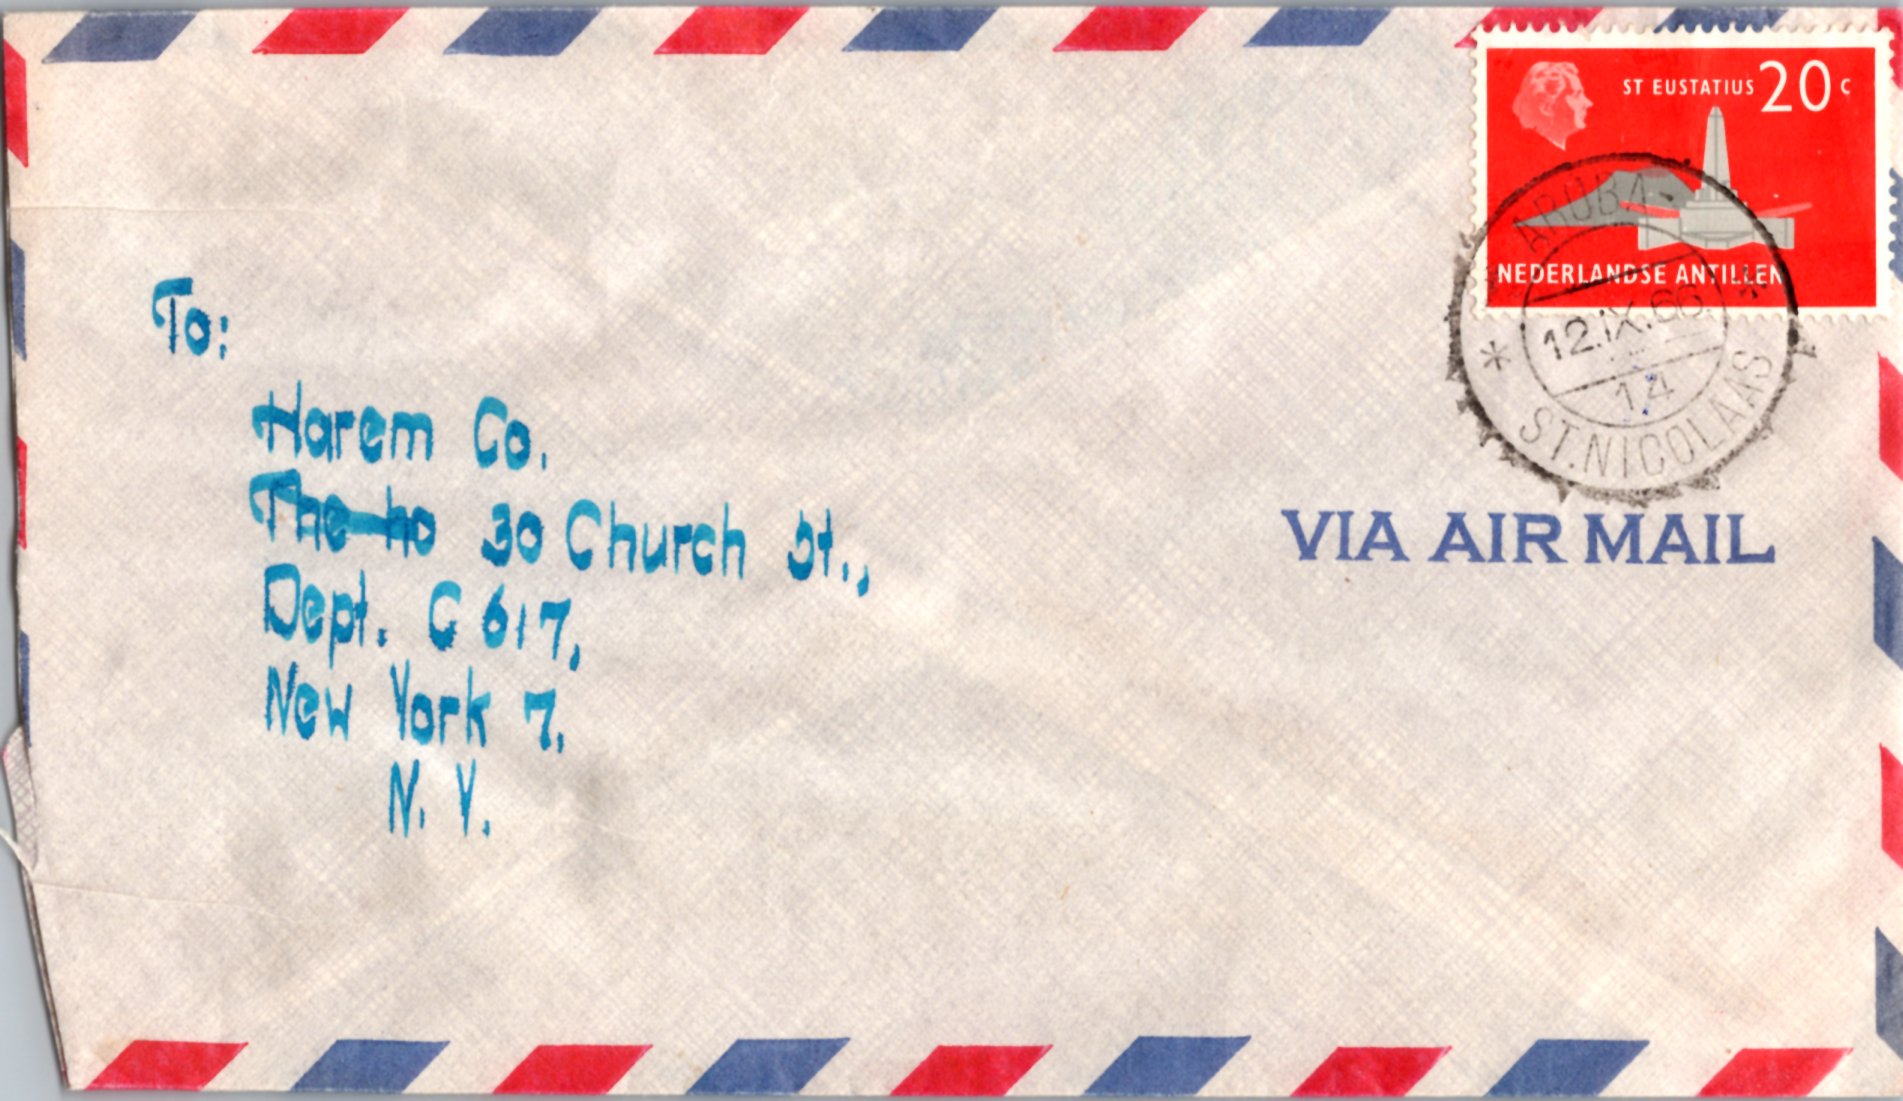 ST EUSTATIUS 20 C
NEDERLANDSE ANTILLEN
ARUBA
12.IX.66.
14
ST. NICOLAAS
VIA AIR MAIL
To:
Harem Co.
The ho 30 Church St.,
Dept. C 617,
New York 7,
N. Y.